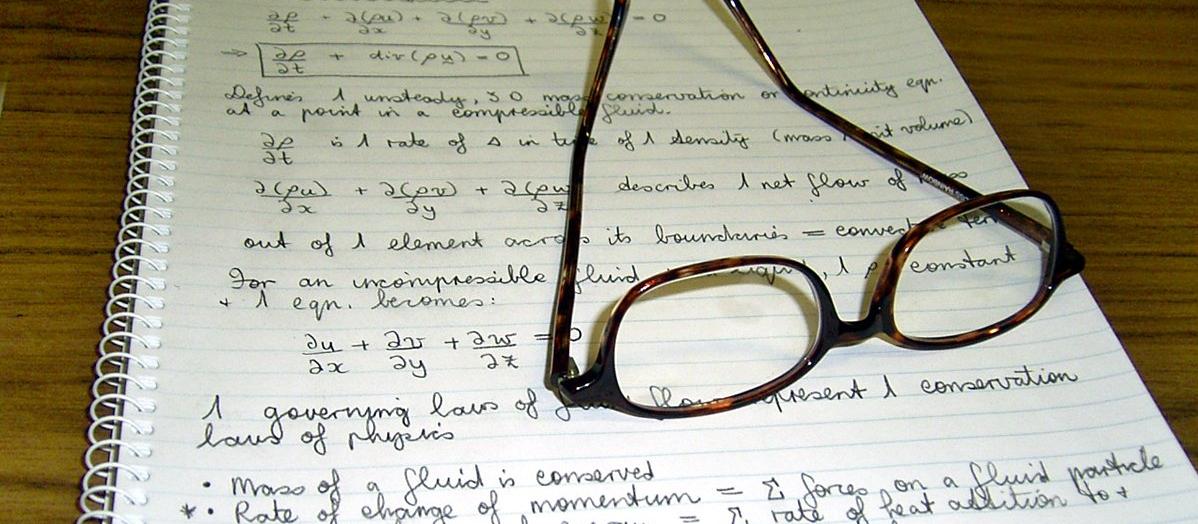 ∂ρ/∂t + ∂(ρu)/∂x + ∂(ρv)/∂y + ∂(ρw)/∂z = 0
⇒ ∂ρ/∂t + div(ρu) = 0
Defines 1 unsteady, 3D mass conservation or continuity eqn.
at a point in a compressible fluid.
∂ρ/∂t is 1 rate of Δ in of 1 density (mass volume)
∂(ρu)/∂x + ∂(ρv)/∂y + ∂(ρw)/∂z describes 1 net flow of
out of 1 element across its boundaries =
For an incompressible fluid 1 ρ constant
+ 1 eqn. becomes:
∂u/∂x + ∂v/∂y + ∂w/∂z = 0
1 governing laws of 1 conservation
laws of physics
• Mass of a fluid is conserved
* • Rate of change of momentum = Σ forces on a fluid particle
= Σ rate of heat addition to